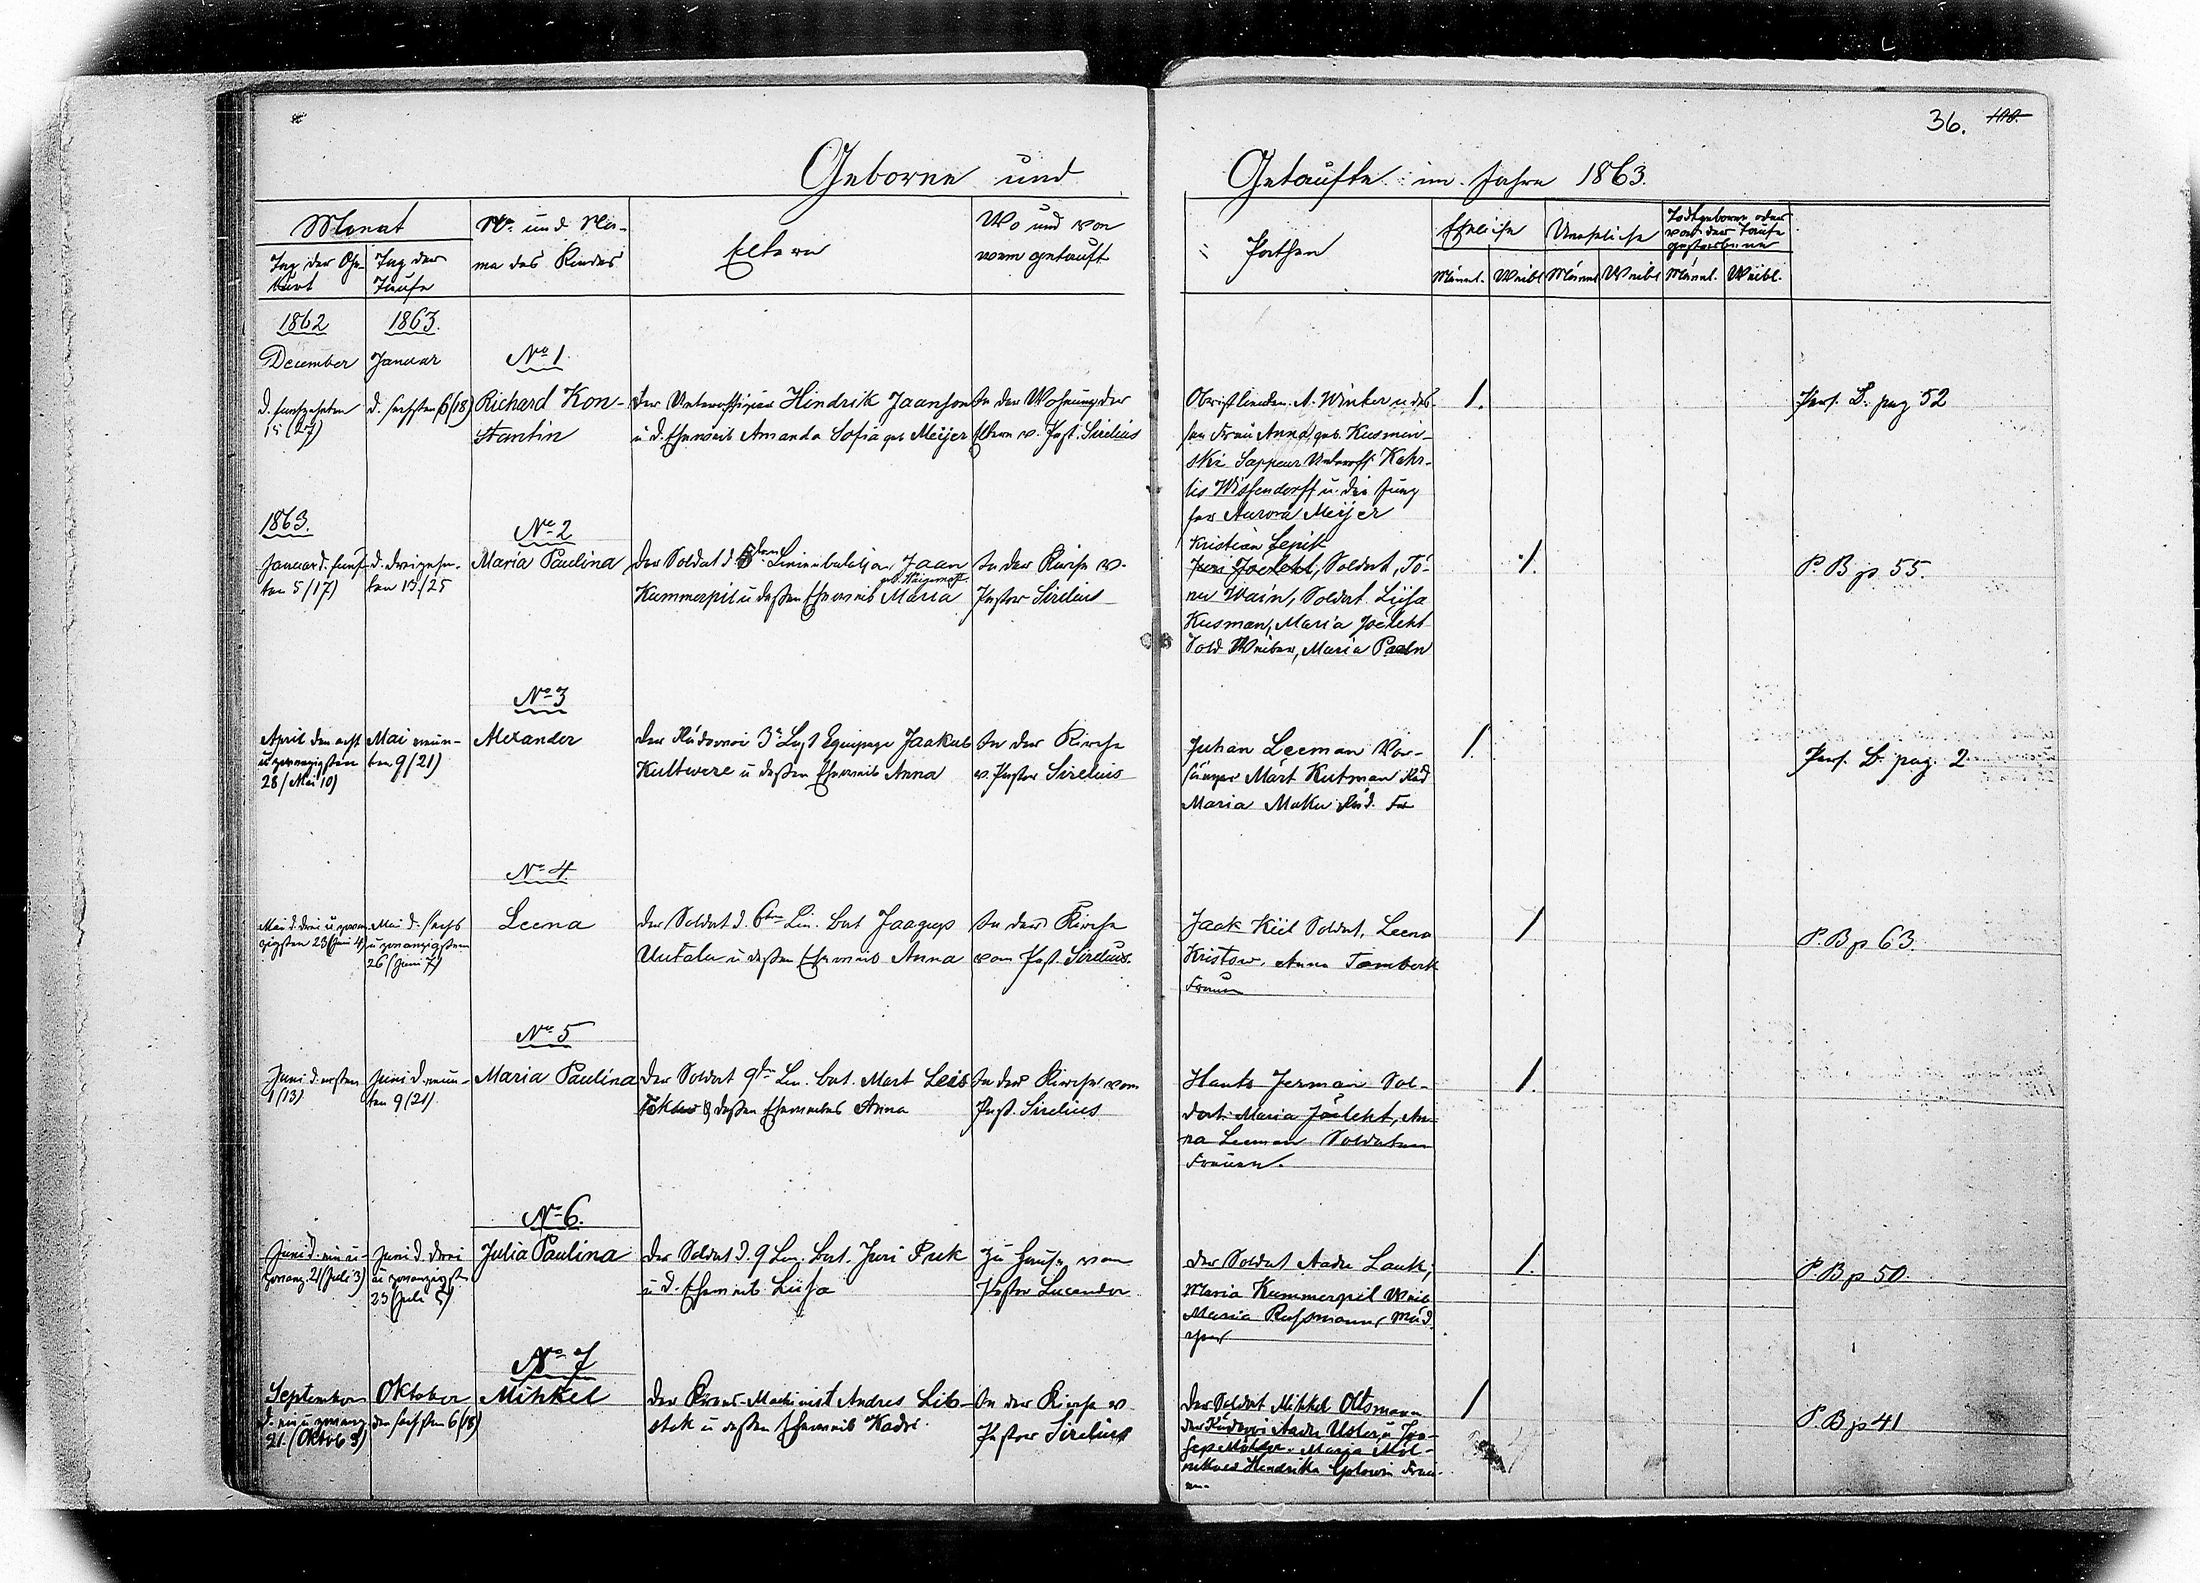 36.
Geborne und Getaufte im Jahre 1863.
Monat
Tag der Ge-
burt
Tag der
Taufe
No. und Na-
me des Kindes
Eltern
Wo und von
wem getauft
Pathen
Eheliche
Männl. Weibl
Uneheliche
Männl Weibl
Todtgeborne oder
vor der Taufe
gestorbene
Männl. Weibl.
1862
1863.
December
Januar
No 1.
d. funfzehnten
15 (27)
d. sechsten 6 (18)
Richard Kon-
stantin
Der Unteroffizier Hindrik Jaanson
u. d. Eheweib Amanda Sofia geb Meijer
In der Wohnung der
Eltern v. Past. Sirelius
Obristlieuten. A. Winter u des-
sen Frau Anna geb. Kusmin-
ski Sappeur Unteroff. Kahr-
lis Wissendorff u. die Jung
fer Aurora Meijer
1.
Pers. B. pag 52
1863.
No 2
Januar d. fünf-
ten 5/17)
d. dreizehn-
ten 13/25
Maria Paulina
Der Soldat d. ten Linienbatalion, Jaan
Kummerpil u dessen Eheweib Maria
In der Kirche v.
Pastor Sirelius
Kristian Lepik
Juri Joeleht, Soldat, Tö-
nu Wain, Soldat Liisa
Kusman, Maria Joeleht
Sold Weiber, Maria
1.
P. B p 55.
No 3
April den acht
u zwanzigsten
28/Mai 10)
Mai neun-
ten 9/21)
Alexander
Der Rüdowoi 3. Equipage Jaakub
Kultwere u dessen Eheweib Anna
In der Kirche
v. Pastor Sirelius
Juhan Leeman Vor-
sänger Märt Kutman Rüd
Maria Maku Rüd. Fr
1.
Pers. B. pag. 2
No 4
Mai d. drei u zwan
zigsten 23 (Juni 4)
Mai d. sechs
u zwanzigsten
26 (Juni 7)
Leena
Der Soldat d. 6ten Lin. Bat Jaagup
Untala u dessen Eheweib Anna
In der Kirche
vom Past. Sirelius.
Jaak Kiil Soldat, Leena
Kristow, Anna Tomberk
Frauen
1
P. B p 63
No 5
Juni d. ersten
1 (13)
Juni d. neun-
ten 9 (21).
Maria Paulina
Der Soldat 9ten Lin. bat. Mart Leis
dessen Eheweibes Anna
In der Kirche vom
Past. Sirelius
Hants Jerman Sol-
dat Maria Jöeleht, An-
na Leeman Soldaten
Frauen.
1.
No 6.
Juni d. ein u-
zwanz. 21 (Juli 3)
Juni d. drei
u zwanzigst.
23 (Juli 5)
Julia Paulina
Der Soldat d. 9 Lin. Bat. Juri Puk
u d. Eheweib Liisa
Zu Hause vom
Pastor Lucander
Der Soldat Aadu Lauk,
Maria Kummerpil Weib
Maria Russmann, Mäd
chen
1.
P. B p 50.
No 7
September
d. ein u zwanz
21. (Oktob 3)
Oktober
den sechsten 6 (18)
Mihkel
Der Andres Lib-
stok u dessen Eheweib Kadri.
In der Kirche v
Pastor Sirelius
Der Soldat Mihkel Oltsmann
der Rüdowoi Aadu Uster u Joo-
sep Maria
Hendrika Golowin Frau-
en.
1
P. B p 41